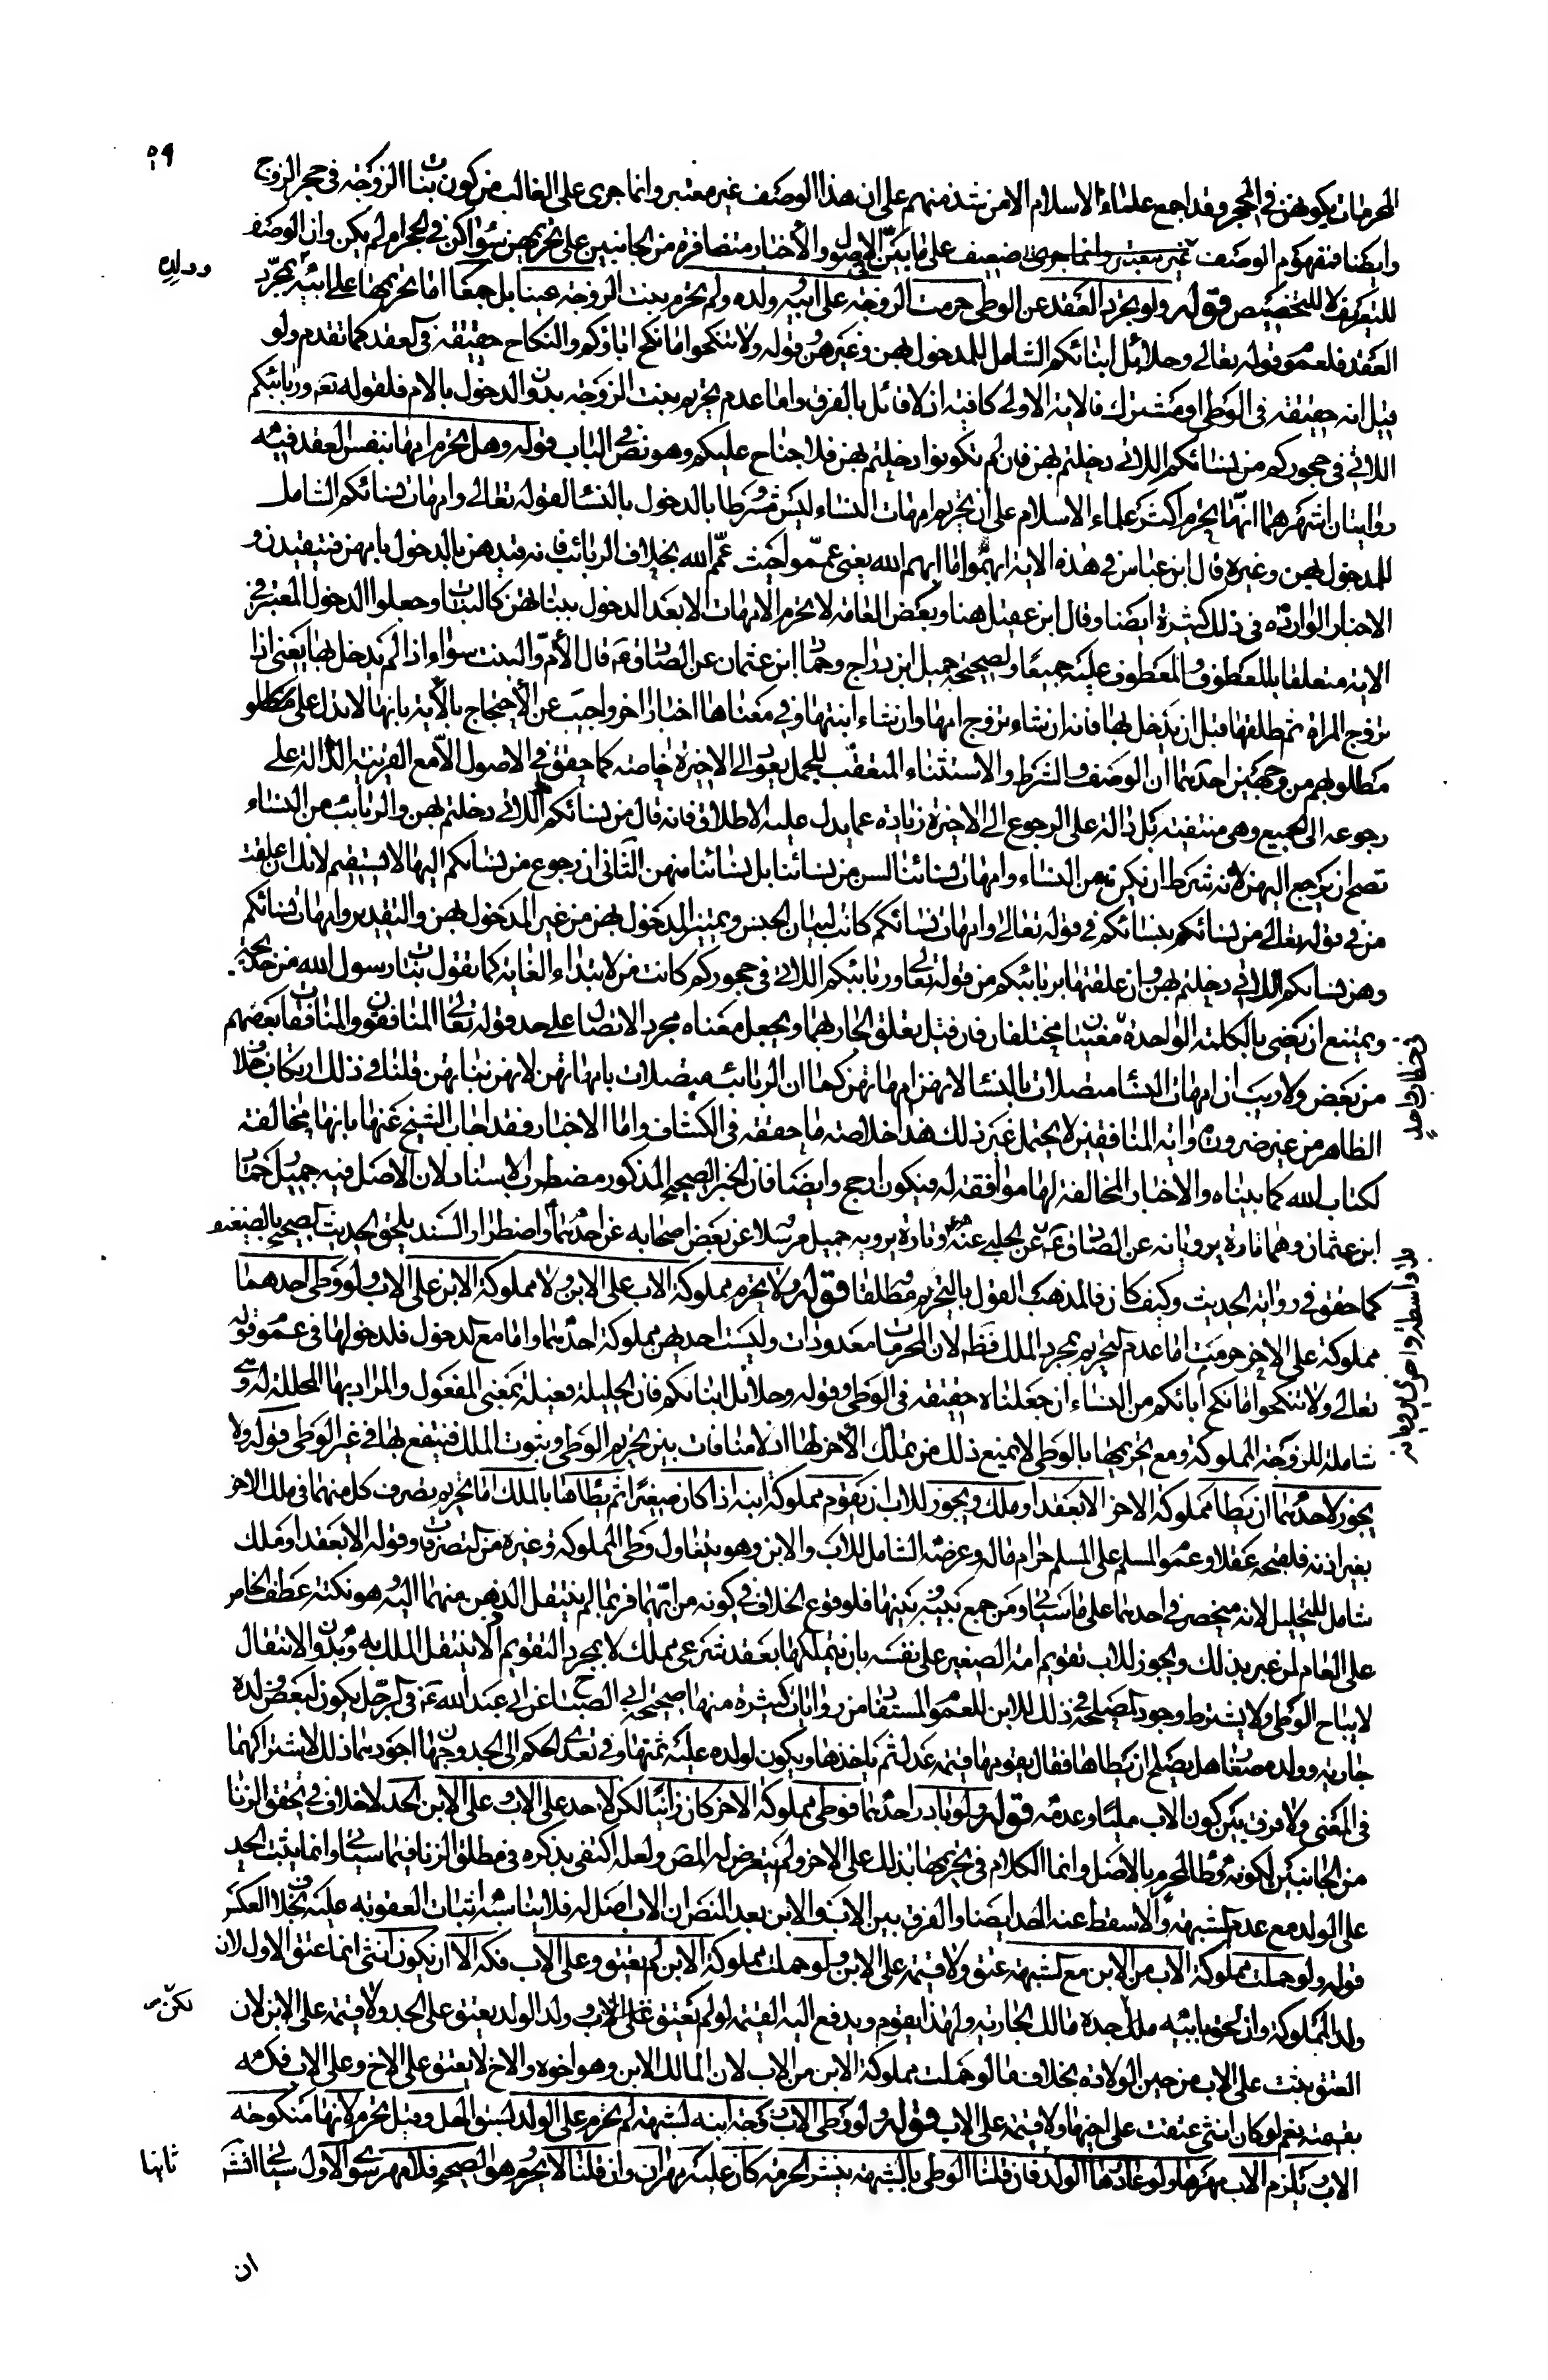 ٥٩
المحرمات بكونهن في الحجر وقد اجمع علماء الاسلام الا من شذ منهم على ان هذا الوصف غير معتبر وانما جرى على الغالب من كون بنات الزوجة في حجر الزوج
وايضا فمفهوم الوصف ضعيف على ما بين في الاصول والاخبار متضافرة من الجانبين على تحريمهن سواء كن في الحجر ام لم يكن وان الوصف
للتعريف لا للتخصيص قوله ولو تجرد العقد عن الوطي حرمت الزوجة على ابيه وولده ولم تحرم بنت الزوجة عينا بل جمعا اما تحريمها على ابيه بمجرد
العقد فلعموم قوله تعالى وحلائل ابنائكم الشامل للمدخول بهن وغيرهن وقوله ولا تنكحوا ما نكح اباؤكم والنكاح حقيقة في العقد كما تقدم ولو
قيل انه حقيقة في الوطي او مشترك فالاية الاولى كافية اذ لا قائل بالفرق واما عدم تحريم بنت الزوجة بدون الدخول بالام فلقوله تعم وربائبكم
اللاتي في حجوركم من نسائكم اللاتي دخلتم بهن فان لم تكونوا دخلتم بهن فلا جناح عليكم وهو نص في الباب قوله وهل تحرم امها بنفس العقد فيه
روايتان اشهرهما انها تحرم اكثر علماء الاسلام على ان تحريم امهات النساء ليس مشروطا بالدخول بالنساء لقوله تعالى وامهات نسائكم الشامل
للمدخول بهن وغيره قال ابن عباس في هذه الاية ابهموا ما ابهم الله يعني عمموا حيث عمم الله بخلاف الربائب فانه قيدهن بالدخول بامهن فيتقيدن و
الاخبار الواردة في ذلك كثيرة ايضا وقال ابن عقيل منا وبعض العامة لا تحرم الامهات الا بعد الدخول ببناتهن كالبنات وجعلوا الدخول المعتبر في
الاية متعلقا بالمعطوف والمعطوف عليه جميعا ولصحيحة جميل ابن دراج وحماد ابن عثمان عن الصادق ع قال الام والبنت سواء اذا لم يدخل بها يعني اذا
تزوج المراة ثم طلقها قبل ان يدخل بها فانه ان شاء تزوج امها وان شاء ابنتها وفي معناها اخبار اخر واجيب عن الاحتجاج بالاية بانها لا تدل على مطلو
مطلوبهم من وجهين احدهما ان الوصف والشرط والاستثناء المتعقب للجمل يعود الى الاخيرة خاصة كما حقق في الاصول الا مع القرينة الدالة على
رجوعه الى الجميع وهي منتفية بل دالة على الرجوع الى الاخيرة زيادة عما يدل عليه الاطلاق فانه قال من نسائكم اللاتي دخلتم بهن والربائب من النساء
تصح ان يرجع اليهن لانه شرط ان يكن من النساء وامهات نسائنا لسن من نسائنا بل نسائنا منهن الثاني ان رجوع من نسائكم اليهما لا يستقيم لانك ان علقت
من في قوله تعالى من نسائكم بنسائكم في قوله تعالى وامهات نسائكم كانت لبيان الجنس وتمييز المدخول بهن من غير المدخول بهن والتقدير وامهات نسائكم
وهن نسائكم اللاتي دخلتم بهن وان علقتها بربائبكم من قوله تعالى وربائبكم اللاتي في حجوركم كانت من لابتداء الغاية كما تقول بنات رسول الله من خديجة
ويمتنع ان يعنى بالكلمة الواحدة معنيان مختلفان فان قيل تعلق الجار بهما ويجعل معناه مجرد الاتصال على حد قوله تعالى المنافقون والمنافقات بعضهم
من بعض ولا ريب ان امهات النساء متصلات بالنساء لانهن امهاتهن كما ان الربائب متصلات بامهاتهن لانهن بناتهن قلنا في ذلك ارتكاب خلاف
الظاهر من غير ضرورة واية المنافقين لا يحتمل غير ذلك هذا خلاصة ما حققه في الكشاف واما الاخبار فقد اجاب الشيخ عنها بانها مخالفة
لكتاب الله كما بيناه والاخبار المخالفة لها موافقة له فيكون ارجح وايضا فان الخبر الصحيح المذكور مضطرب الاسناد لان الاصل فيه جميل وحماد
ابن عثمان وهما تارة يرويانه عن الصادق ع عن الحلبي عنه وتارة يرويه جميل مرسلا عن بعض اصحابه عن احدهما ع واضطراب السند يلحق الحديث الصحيح بالضعيف
كما حقق في رواية الحديث وكيف كان فالمذهب القول بالتحريم مطلقا قوله ولا تحرم مملوكة الاب على الابن ولا مملوكة الابن على الاب ولو وطى احدهما
مملوكة على الاخر حرمت اما عدم التحريم بمجرد الملك فظ لان المحرمات معدودات وليست احديهن مملوكة احدهما واما مع الدخول فلدخولها في عموم قوله
تعالى ولا تنكحوا ما نكح اباؤكم من النساء ان جعلناه حقيقة في الوطي وقوله وحلائل ابنائكم فان الحليلة فعيلة بمعنى المفعول والمراد بها المحللة له وهي
شاملة للزوجة المملوكة ومع تحريمها بالوطي لا يمنع ذلك من تملك الاخر لها اذ لا منافات بين تحريم الوطي وثبوت الملك فينتفع بها في غير الوطي قوله ولا
يجوز لاحدهما ان يطا مملوكة الاخر الا بعقد او ملك ويجوز للاب ان يقوم مملوكة ابنه اذا كان صغيرا ثم يطاها بالملك اما تحريم تصرف كل منهما في ملك الاخر
بغير اذنه فلقبحه عقلا وعموم المسلم على المسلم حرام ماله وعرضه الشامل للاب والابن وهو يتناول وطى المملوكة وغيره من التصرفات وقوله الا بعقد او ملك
شامل للتحليل لانه منحصر في احدهما على ما سياتي ومن جمع بينه وبينها فلوقوع الخلاف في كونه من ايهما فربما لم ينتقل الذهن منهما اليه وهو نكتة عطف الخاص
على العام لمن عبر بذلك ويجوز للاب تقويم امة الصغير على نفسه بان يتملكها بعقد شرعي مملك لا بمجرد التقويم اذ لا ينتقل الملك به وبدون الانتقال
لا يباح الوطي ولا يشترط وجود المصلحة في ذلك للابن للعموم المستفاد من روايات كثيرة منها صحيحة ابي الصباح عن ابي عبد الله ع في الرجل يكون لبعض ولده
جارية وولده صغار هل يصلح ان يطاها فقال يقومها قيمة عدل ثم ياخذها ويكون لولده عليه ثمنها وفي تعدي الحكم الى الجد وجهان اجودهما ذلك لاشتراكهما
في المعنى ولا فرق بين كون الاب مليا وعدمه قوله ولو بادر احدهما فوطى مملوكة الاخر كان زانيا لكن لا حد على الاب وعلى الابن الحد لا خلاف في تحقق الزنا
من الجانبين لكونه وطا لمحرم بالاصل وانما الكلام في تحريمها بذلك على الاخر ولم يتعرض له المص ولعله اكتفى بذكره في مطلق الزنا فيما سياتي وانما يثبت الحد
على الولد مع عدم الشبهة والا سقط عنه الحد ايضا والفرق بين الاب والابن بعد النص ان الاب اصل له فلا يناسبه اثبات العقوبة عليه بخلاف العكس
قوله ولو حملت مملوكة الاب من الابن مع الشبهة عتق ولا قيمة على الابن ولو حملت مملوكة الابن لم يعتق وعلى الاب فكه الا ان يكون انثى انما عتق الاول لان
ولد المملوكة وان لحق بابيه ملك جده مالك الجارية ولهذا يقوم ويدفع اليه القيمة لو لم يعتق على الاب وولد الولد يعتق على الجد ولا قيمة على الابن لان
العتق يثبت على الاب من حين الولادة بخلاف ما لو حملت مملوكة الابن من الاب لان المالك الابن وهو اخوه والاخ لا يعتق على الاخ وعلى الاب فكه
بقيمته نعم لو كان انثى عتقت على اخيها ولا قيمة على الاب قوله ولو وطى الاب زوجة ابنه لشبهة لم تحرم على الولد لسبق الحل وقيل تحرم لانها منكوحة
الاب يلزم الاب مهرها ولو عاودها الولد فان قلنا الوطي بالشبهة ينشر الحرمة كان عليه مهران وان قلنا لا يحرم وهو الصحيح فلا مهر سوى الاول
ثانيا
ان